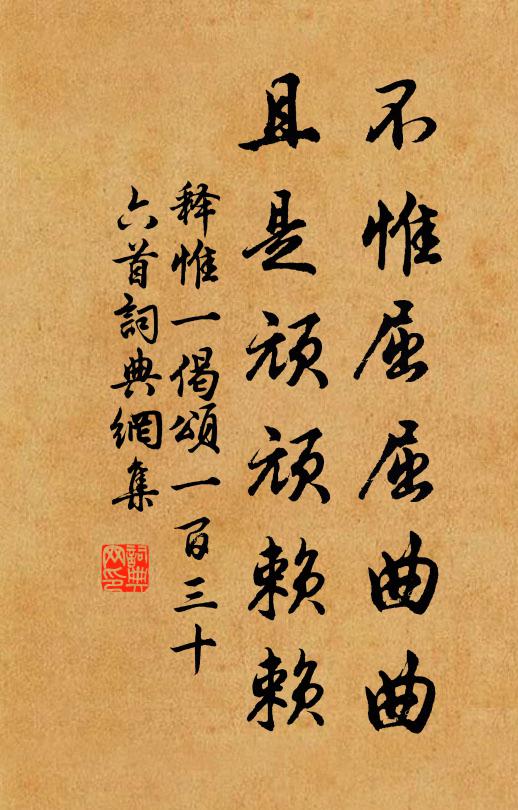 不惟屈屈曲曲
且是頑頑賴賴
释惟一偈頌一百三十
六首詞典網集
詞典網印